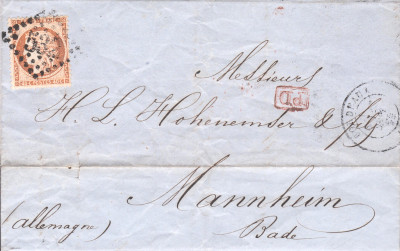 Messieurs
P.D.
H. L. Hohenemser & fils
Mannheim
(allemagne)
Bade